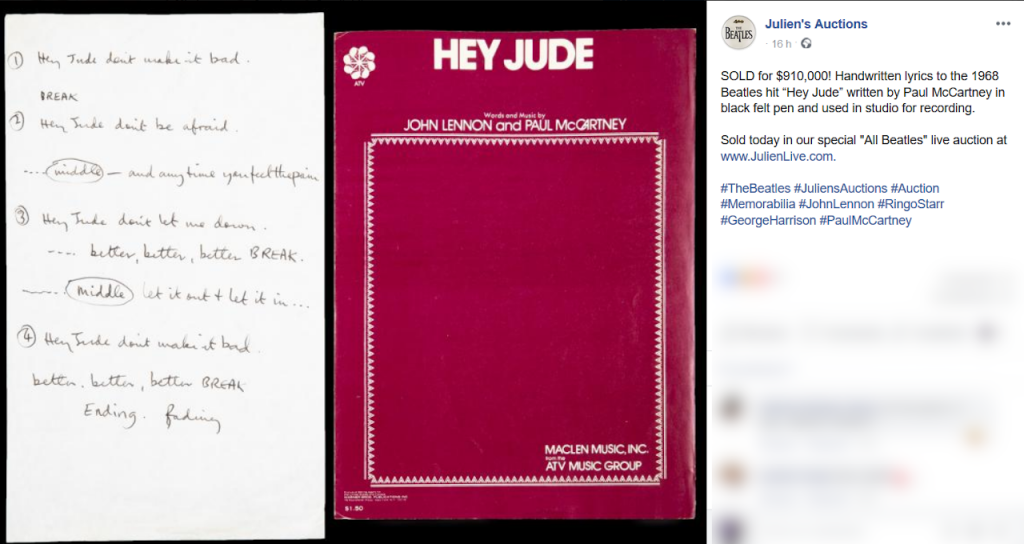 ① Hey Jude don't make it bad.
BREAK
② Hey Jude don't be afraid.
.... middle — and anytime you feel the pain
③ Hey Jude don't let me down.
---- better, better, better BREAK.
middle let it out + let it in...
④ Hey Jude don't make it bad.
better, better, better BREAK
Ending. fading
ATV
HEY JUDE
Words and Music by
JOHN LENNON and PAUL McCARTNEY
MACLEN MUSIC, INC.
from the
ATV MUSIC GROUP
$1.50
THE BEATLES
Julien's Auctions
· 16 h ·
SOLD for $910,000! Handwritten lyrics to the 1968
Beatles hit “Hey Jude” written by Paul McCartney in
black felt pen and used in studio for recording.
Sold today in our special "All Beatles" live auction at
www.JulienLive.com.
#TheBeatles #JuliensAuctions #Auction
#Memorabilia #JohnLennon #RingoStarr
#GeorgeHarrison #PaulMcCartney